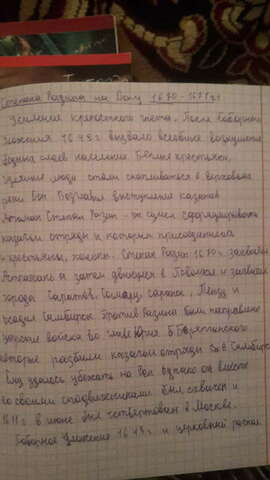 Степана Разина на Дону 1670-1671гг
Усиление крепостного гнёта. После Соборного
Уложения 1649г. вызвало всеобщее возмущение
слоев населения. Беглые крестьяне,
люди стали скапливаться в верховьях
реки Дон. Возглавил выступление казаков
Атаман Степан Разин - он сумел сформировать
казачьи отряды к которым присоединились
крестьяне, Степан Разин 1670г. захватил
Астрахань а затем двинулся в Поволжье и захватил
города Саратов, Самару, Саранск, Пензу и
осадил Симбирск. Против Разина были направлены
царские войска во главе Юрия Б. Барятинского
которые разбили казачьи отряды в Симбирске
удалось убежать на Дон однако он вместе
со своими сподвижниками был схвачен и
1671г. в июне был четвертован в Москве.
Соборное Уложение 1649г. и церковный раскол